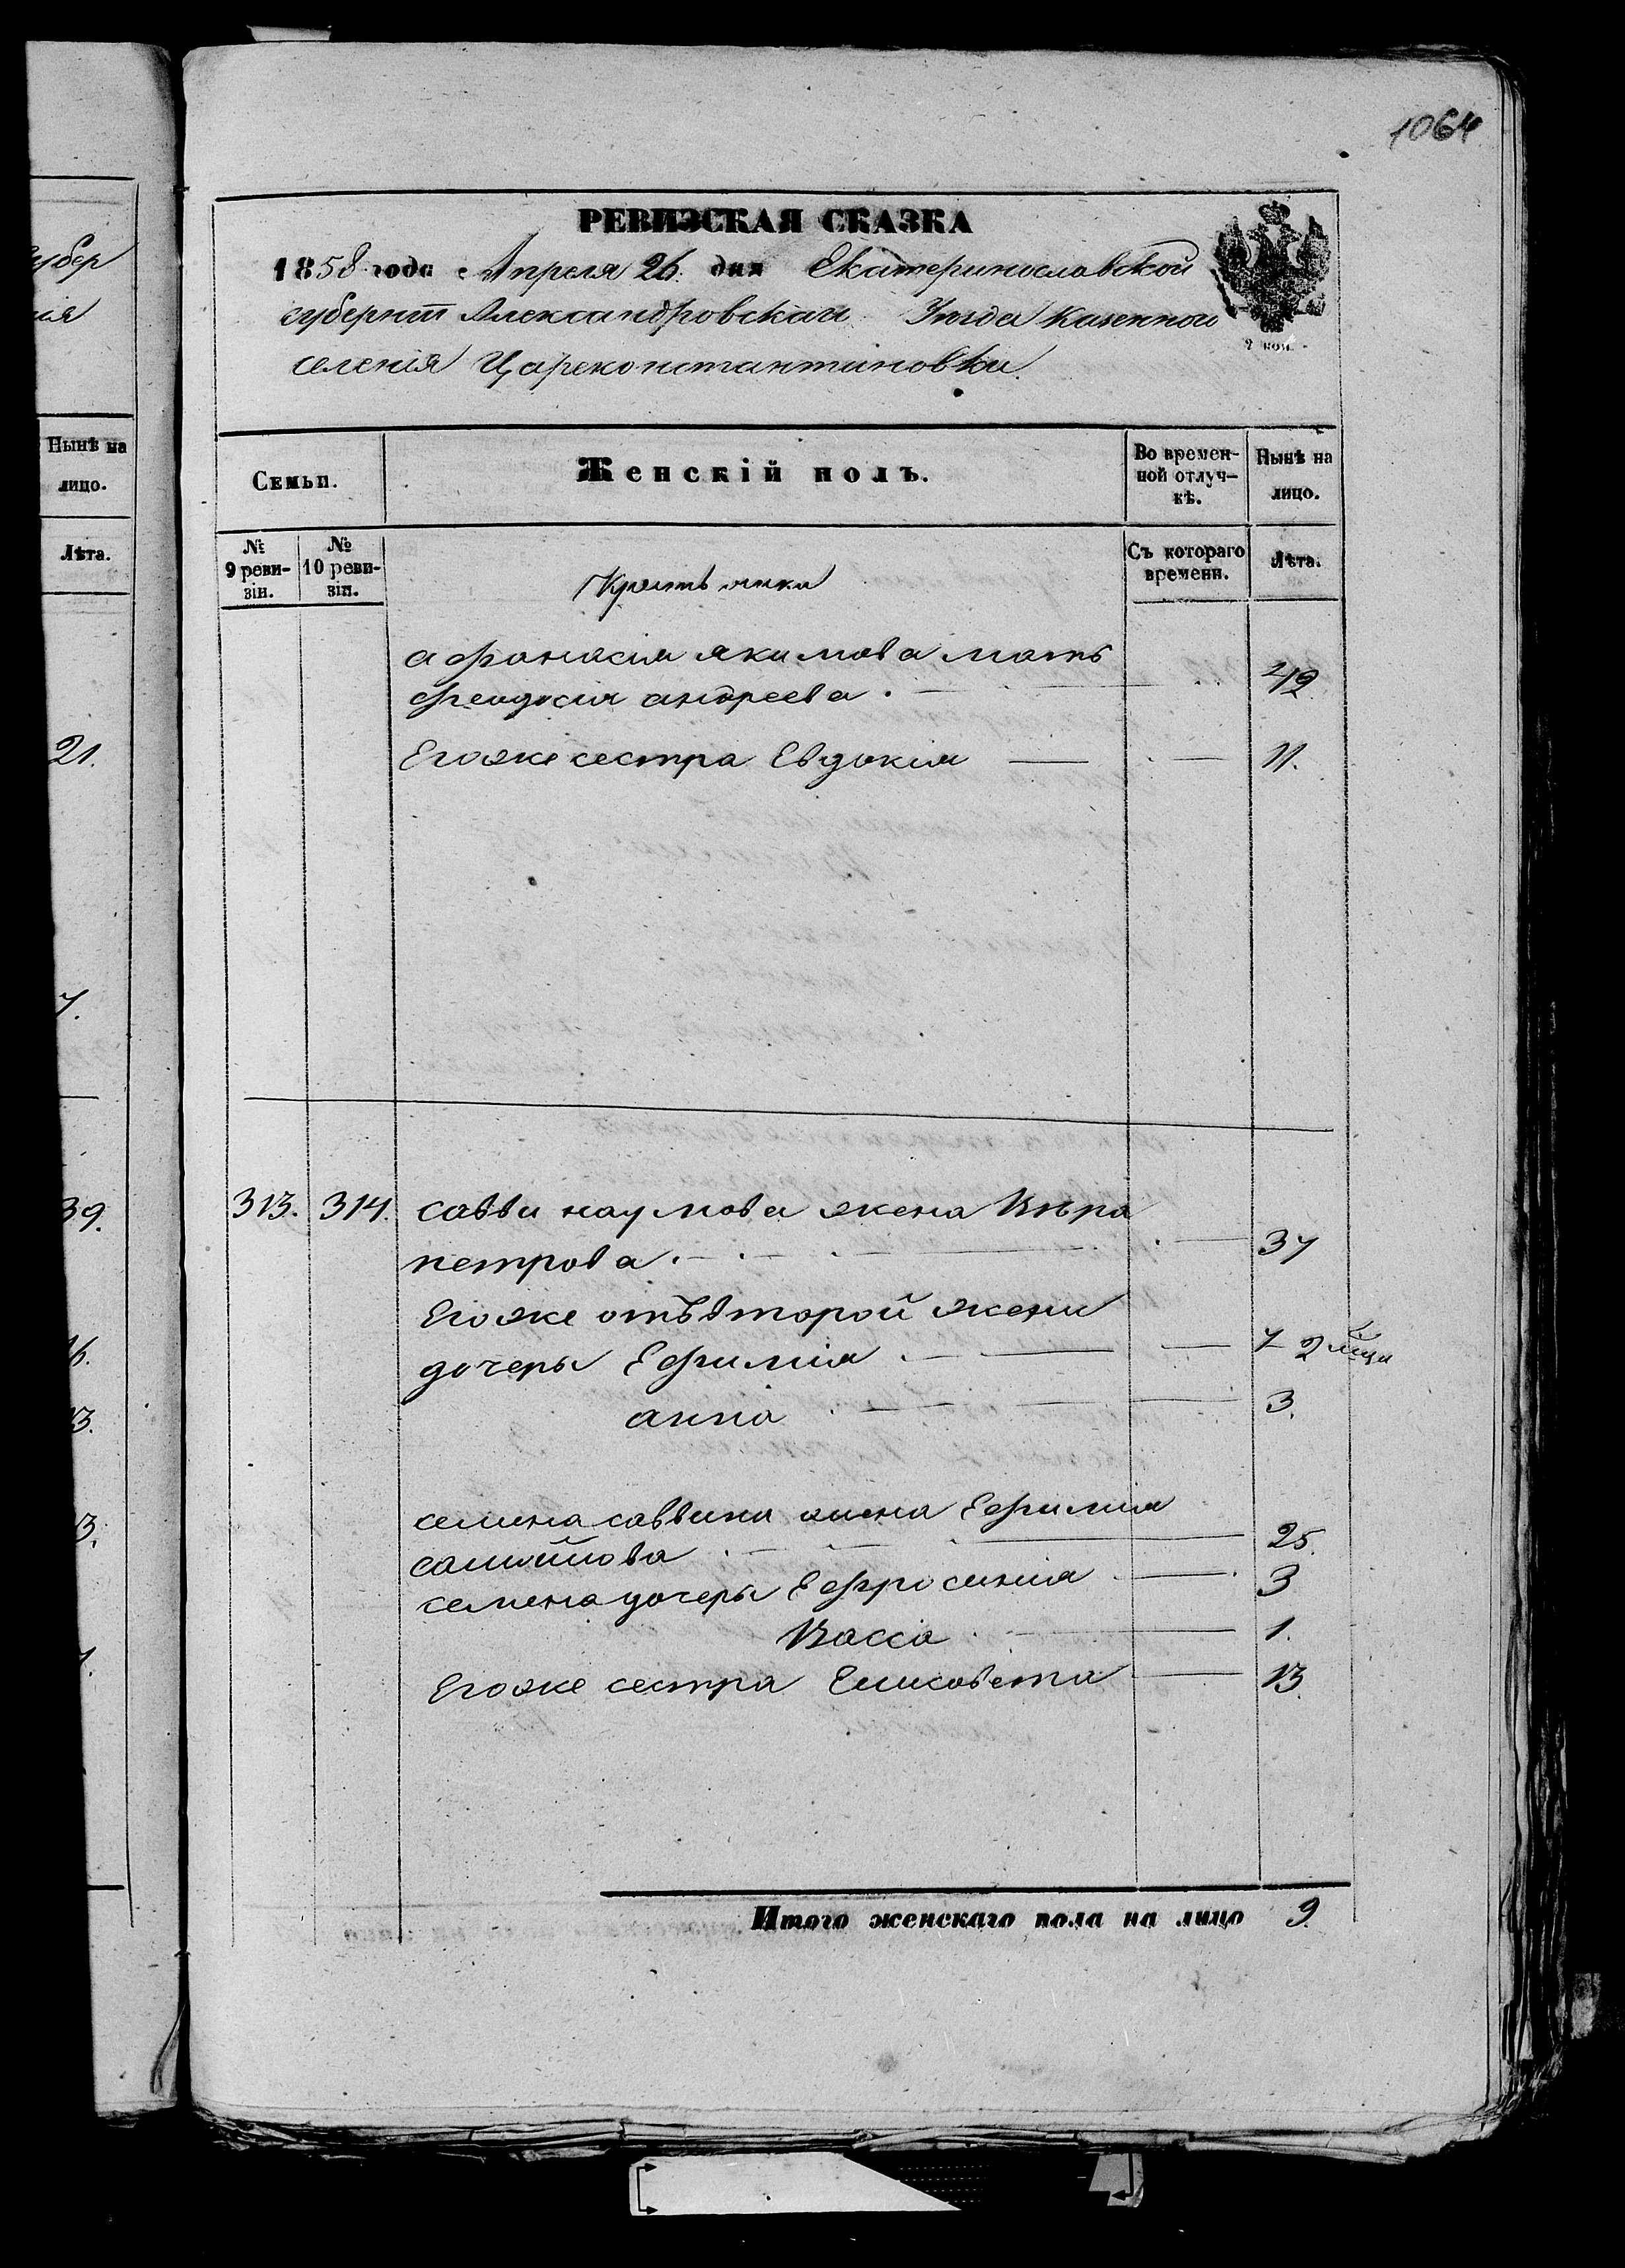 1064
РЕВИЗСКАЯ СКАЗКА
1858 года Апреля 26. дня Екатеринославской
губерніи Александровскаго Уѣзда Казенного
селенія Цареконстантиновки.
2 коп.
Семьи.
Женскій полъ.
Во времен-
ной отлуч-
кѣ.
Нынѣ на
лицо.
№
9 реви-
зіи.
№
10 реви-
зіи.
Съ котораго
времени.
Лѣта.
афанасия якимова мать
феодосия андреева 49
Егоже сестра Евдокия 11.
313. 314. савви наумова жена Кира
петрова 37
Егоже отъ второй жени
дочеры Ефимия 7
анна 3.
семена саввина жена Ефимия
самойлова 25.
семена дочеры Ефросиния 3
Васса 1.
Егоже сестра Елисовета 13.
Итого женскаго пола на лицо 9.
убер
ія
Нынѣ на
лицо.
Лѣта.
21.
7.
39.
6.
13.
3.
1.